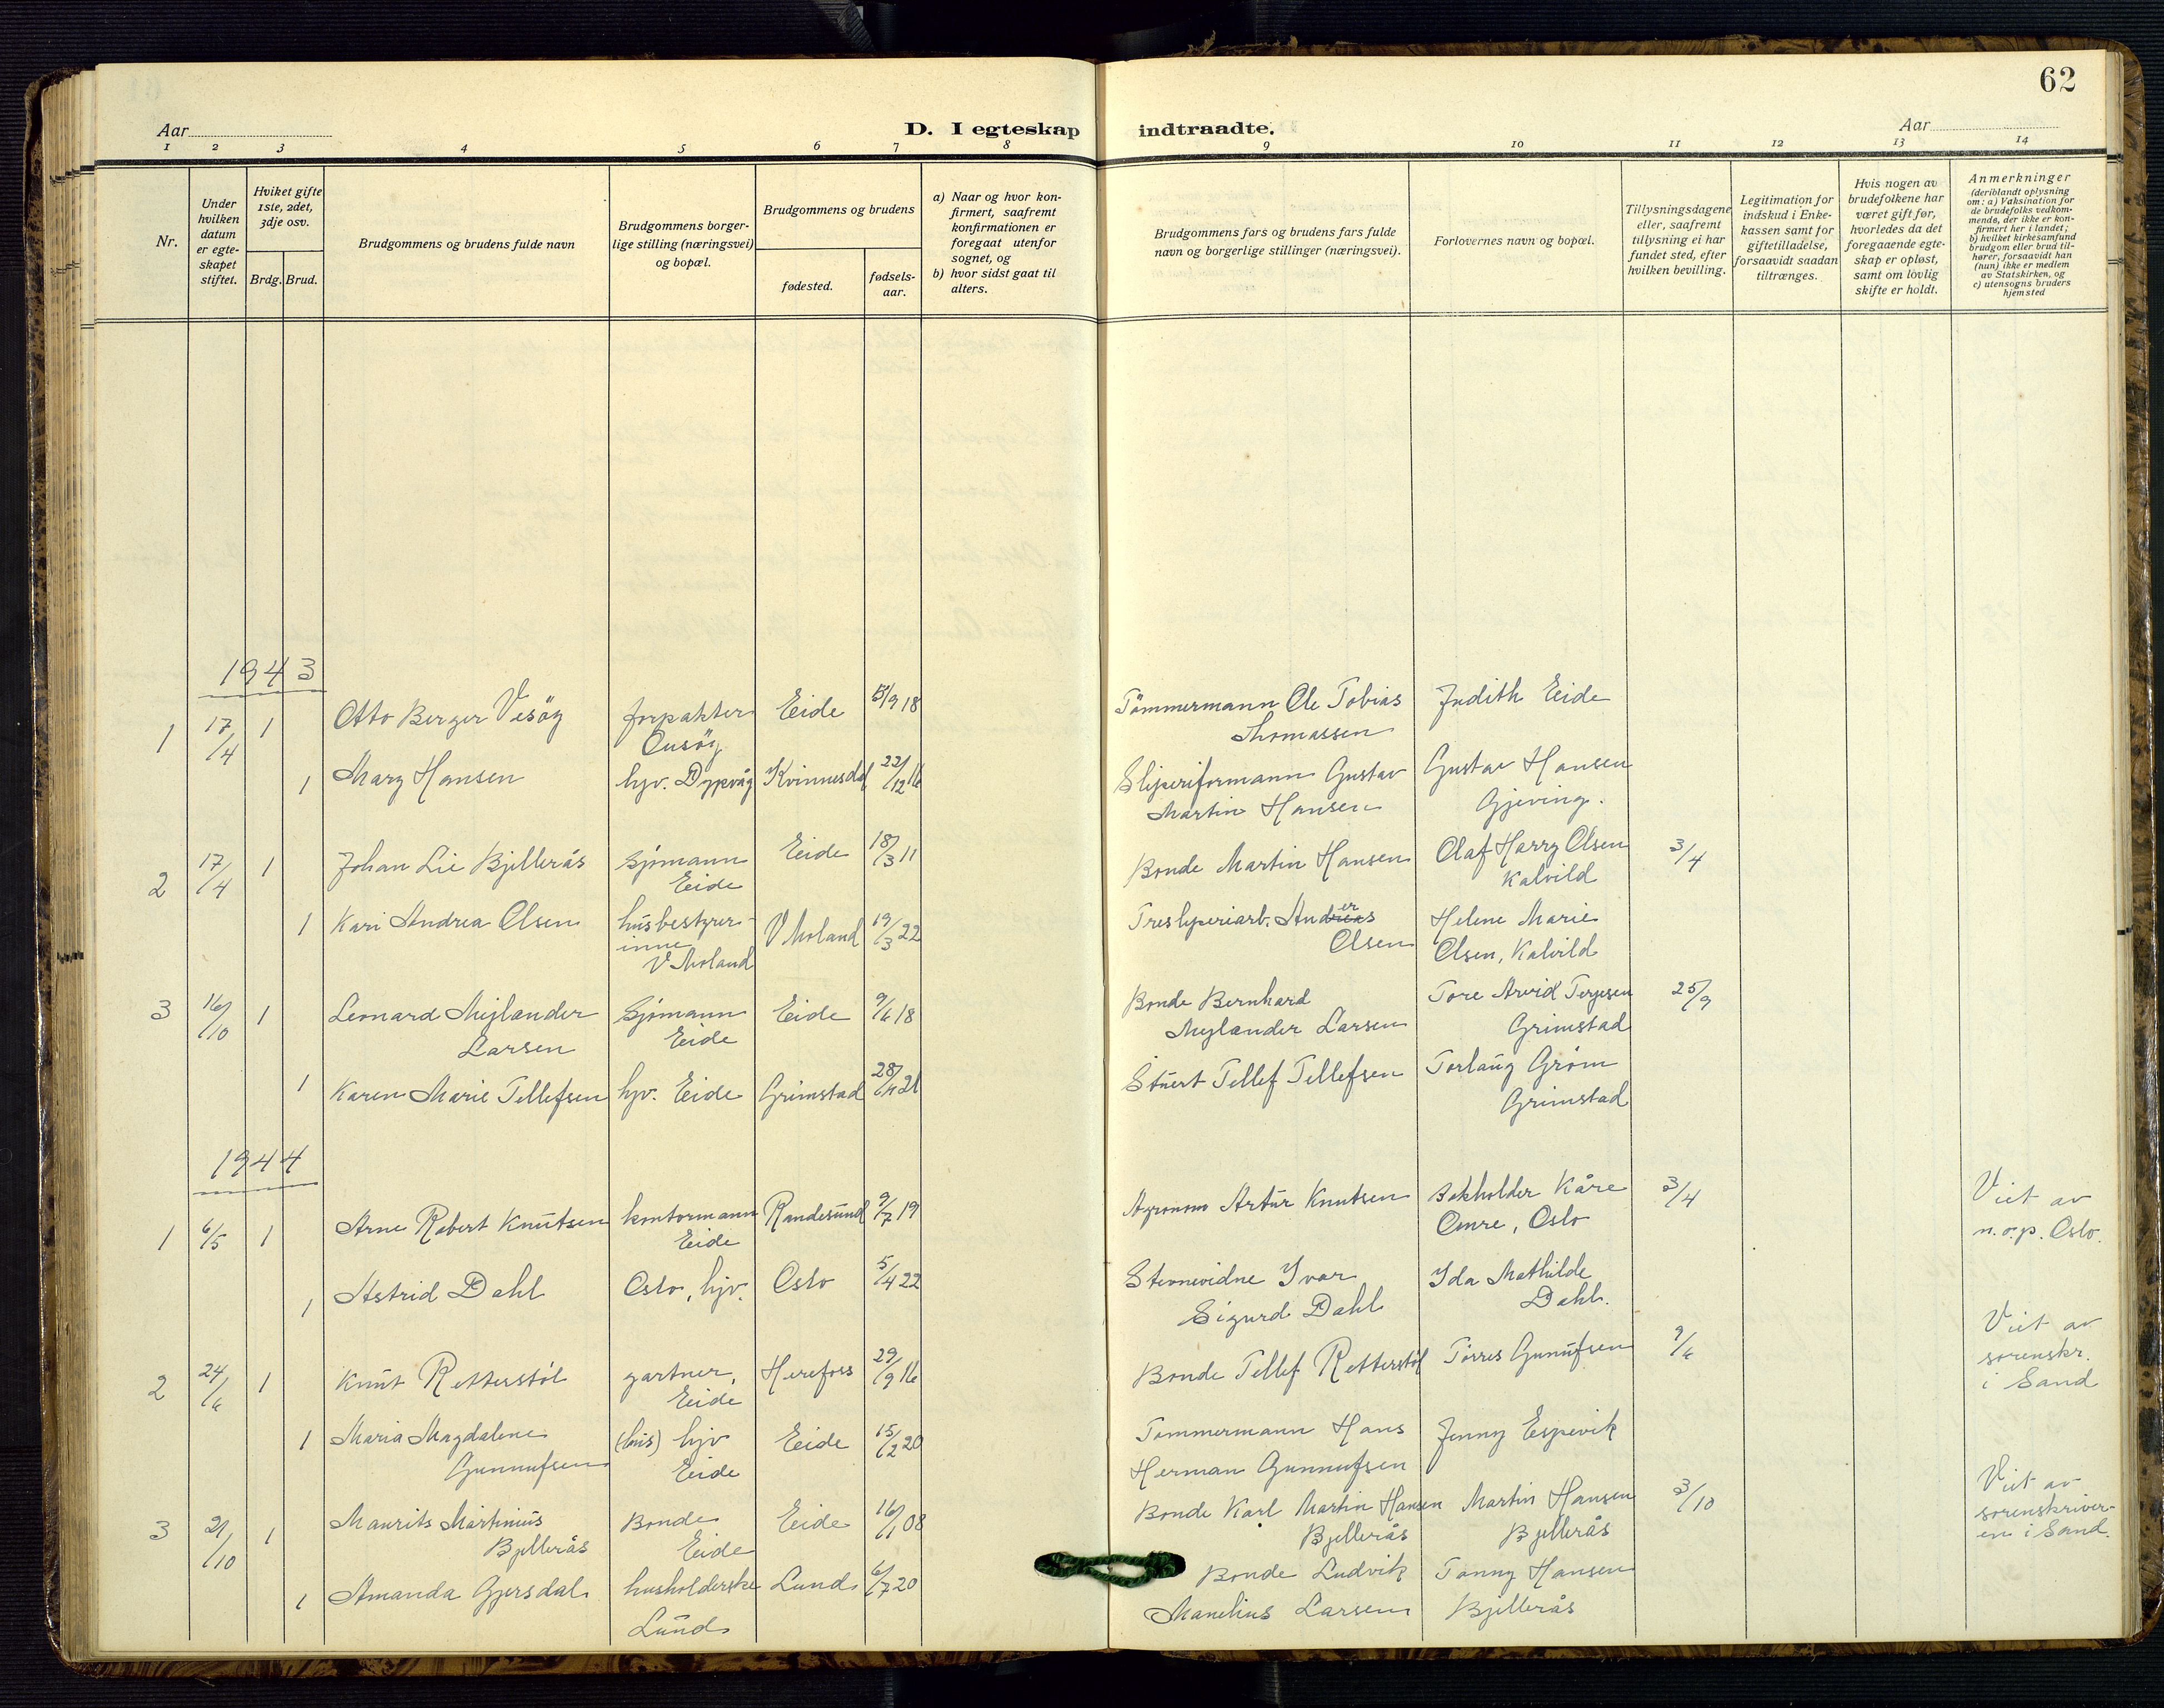 62
Aar
D. I egteskap indtraadte.
Aar
1 2 3 4 5 6 7 8 9 10 11 12 13 14
Nr.
Under hvilken datum er egte-skapet stiftet.
Hviket gifte 1ste, 2det, 3dje osv.
Brdg. Brud.
Brudgommens og brudens fulde navn
Brudgommens borger-lige stilling (næringsvei) og bopæl.
Brudgommens og brudens
fødested.
fødsels-aar.
a) Naar og hvor kon-firmert, saafremt konfirmationen er foregaat utenfor sognet, og
b) hvor sidst gaat til alters.
Brudgommens fars og brudens fars fulde navn og borgerlige stillinger (næringsvei).
Forlovernes navn og bopæl.
Tillysningsdagene eller, saafremt tillysning ei har fundet sted, efter hvilken bevilling.
Legitimation for indskud i Enke-kassen samt for giftetilladelse, forsaavidt saadan tiltrænges.
Hvis nogen av brudefolkene har været gift før, hvorledes da det foregaaende egte-skap er opløst, samt om lovlig skifte er holdt.
Anmerkninger (deriblandt oplysning om: a) Vaksination for de brudefolks vedkom-mende, der ikke er kon-firmert her i landet; b) hvilket kirkesamfund brudgom eller brud til-hører, forsaavidt han (hun) ikke er medlem av Statskirken, og c) utensogns bruders hjemsted
1943
1 17/4 1 Otto Berger Vesöy forpakter Eide 5/9 18 Tömmermann Ole Tobias Judith Eide
Ousöy Thomassen
1 Mary Hansen hjv. Dypvåg Kvinnesdal 22/12 16 Sliperiformann Gustav Gustav Hansen
Martin Hansen Gjeving.
2 17/4 1 Johan Lie Bjellerås Sjömann Eide 18/3 11 Bonde Martin Hansen Olaf Harry Olsen 3/4
Eide Kalvild
1 Kari Andrea Olsen husbestyrer- V Moland 19/3 22 Tresliperiarb. Andreas er Helene Marie
inne Olsen Olsen, Kalvild
V Moland
3 16/10 1 Leonard Mejlander Sjömann Eide 9/6 18 Bonde Bernhard Tore Arvid Terjesen 25/9
Larsen Eide Mylander Larsen Grimstad
1 Karen Marie Tellefsen hjv. Eide Grimstad 28/4 21 Stuert Tellef Tellefsen Torlaug Gröm
Grimstad
1944
1 6/5 1 Arne Robert Knutsen kontormann Randesund 9/7 19 Agronom Artur Knutsen Bokholder Kåre 3/4 Viet av
Eide Omre, Oslo n.o.p. Oslo.
1 Astrid Dahl Oslo, hjv. Oslo 5/4 22 Stevnevidne Ivar Ida Mathilde
Sigurd Dahl Dahl.
2 24/6 1 Knut Retterstöl gartner, Herefoss 29/9 16 Bonde Tellef Retterstöl Torres Gunnufsen 9/6 Viet av
Eide sorenskr.
i Sand
1 Maria Magdalene (hus) hjv Eide 15/2 20 Tommermann Hans Jenny Espevik
Gunnufsen Eide Herman Gunnufsen
3 21/10 1 Maurits Martinius Bonde Eide 16/1 08 Bonde Karl Martin Hansen Martin Hansen 3/10 Viet av
Bjellerås Eide Bjellerås Bjellerås sorenskriver-
en i Sand.
1 Amanda Gjersdal husholderske Lund 6/7 20 Bonde Ludvik Tanny Hansen
Lund Manelius Larsen Bjellerås